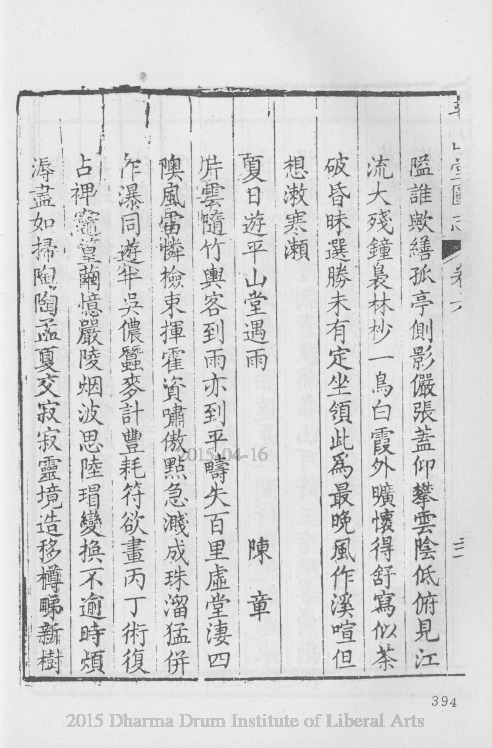 平山堂圖志 卷六
隘誰歟繕孤亭側影儼張蓋仰攀雲陰低俯見江
流大殘鐘裊林杪一鳥白霞外曠懷得舒寫似荼
破昏昧選勝未有定坐領此爲最晚風作溪喧但
想漱寒瀨
夏日遊平山堂遇雨 陳章
片雲隨竹輿客到雨亦到平疇失百里虛堂淒四
隩風雷憐檢束揮霍資嘯傲點急濺成珠溜猛併
乍瀑同遊半吳儂蠶麥計豐耗符欲畫丙丁術復
占裨竈篁繭憶嚴陵烟波思陸瑁變換不逾時煩
溽盡如掃陶陶孟夏交寂寂靈境造移樽睇新樹
394
2015-04-16
2015 Dharma Drum Institute of Liberal Arts